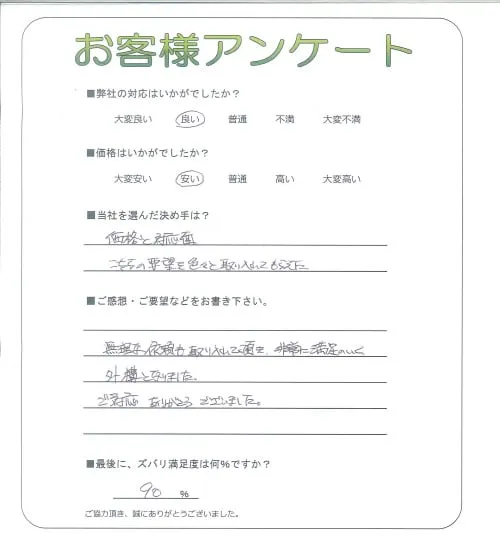 お客様アンケート
■弊社の対応はいかがでしたか?
大変良い 良い 普通 不満 大変不満
■価格はいかがでしたか?
大変安い 安い 普通 高い 大変高い
■当社を選んだ決め手は?
価格と対応面
こちらの要望を色々と取り入れてもらえた
■ご感想・ご要望などをお書き下さい。
無理な依頼も取り入れて頂き、非常に満足のいく
外構となりました。
ご対応ありがとうございました。
■最後に、ズバリ満足度は何%ですか?
90 %
ご協力頂き、誠にありがとうございました。